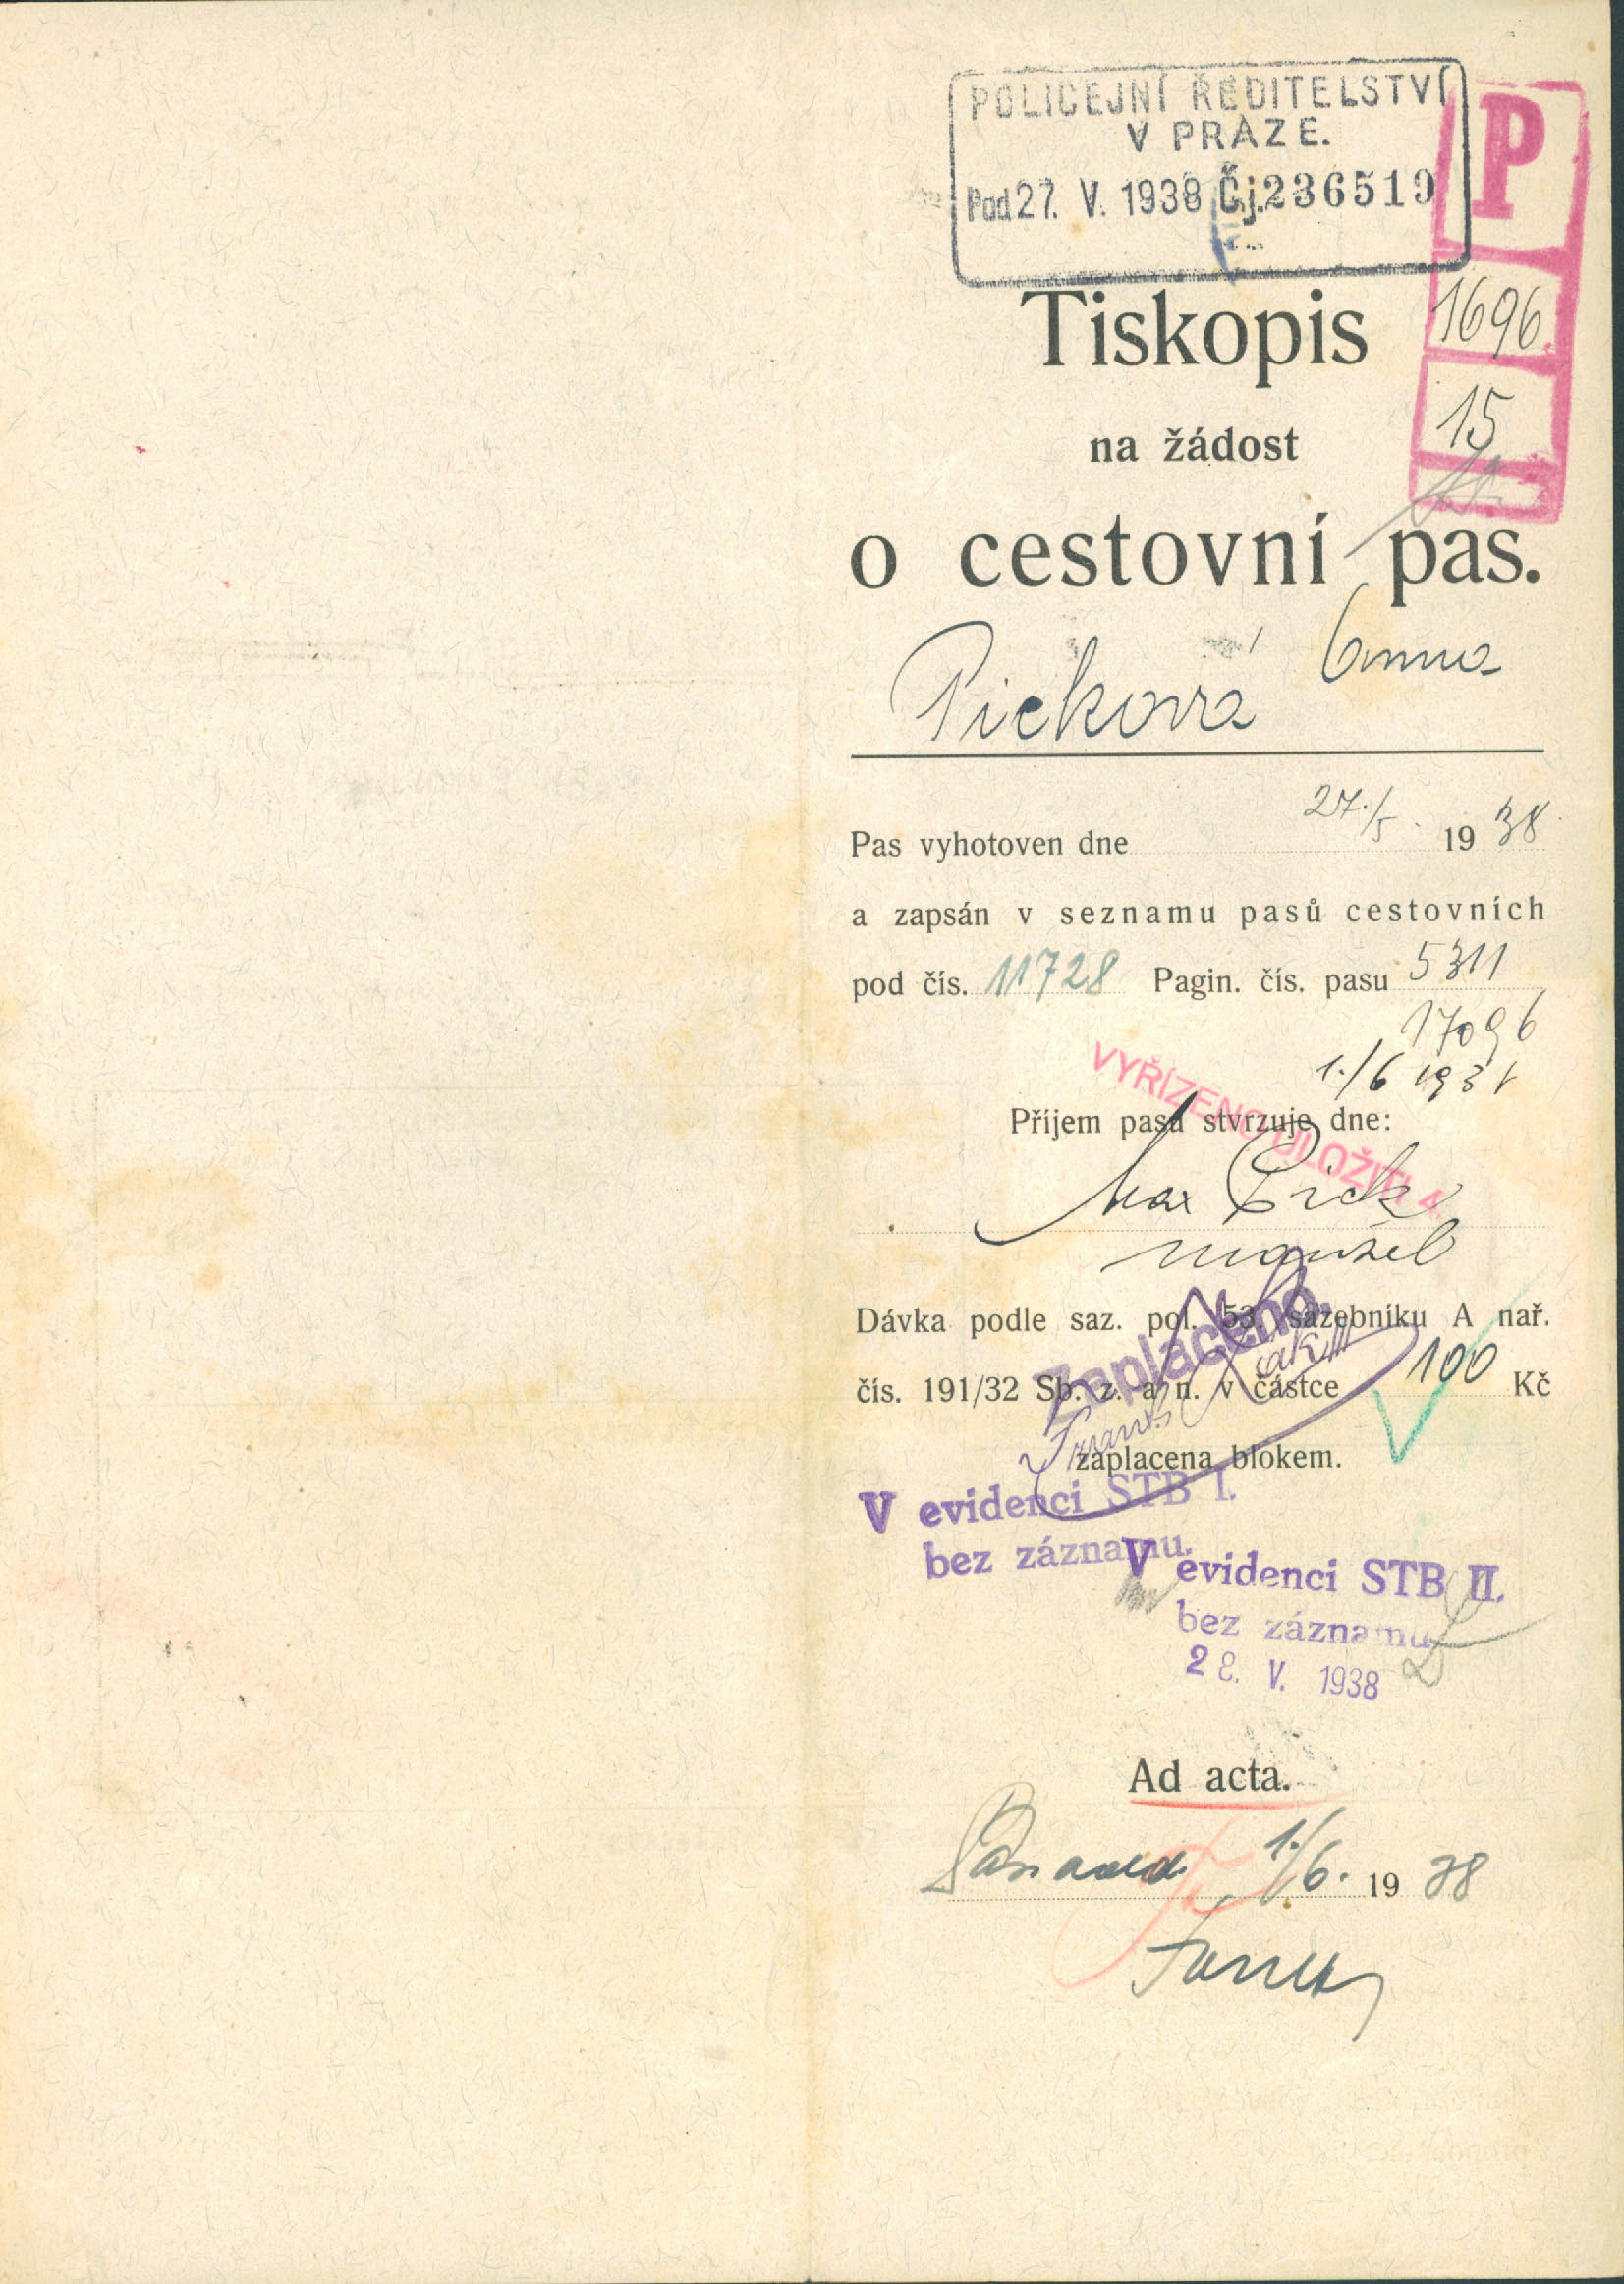 POLICEJNÍ ŘEDITELSTVÍ
V PRAZE.
Pod 27. V. 1938 Čj. 236519
P
1696
15
Tiskopis
na žádost
o cestovní pas.
Picková Anna
Pas vyhotoven dne 27./5. 1938
a zapsán v seznamu pasů cestovních
pod čís. 11728 Pagin. čís. pasu 5311
17096
1./6 1938
VYŘÍZENO ULOŽITI
Příjem pasu stvrzuje dne:
Max Pick
manžel
Dávka podle saz. pol. 53. sazebníku A nař.
čís. 191/32 Sb. z. a n. v částce 100 Kč
Zaplaceno.
zaplacena blokem.
V evidenci STB I.
bez záznamu.
V evidenci STB II.
bez záznamu
28. V. 1938
Ad acta.
1./6. 1938